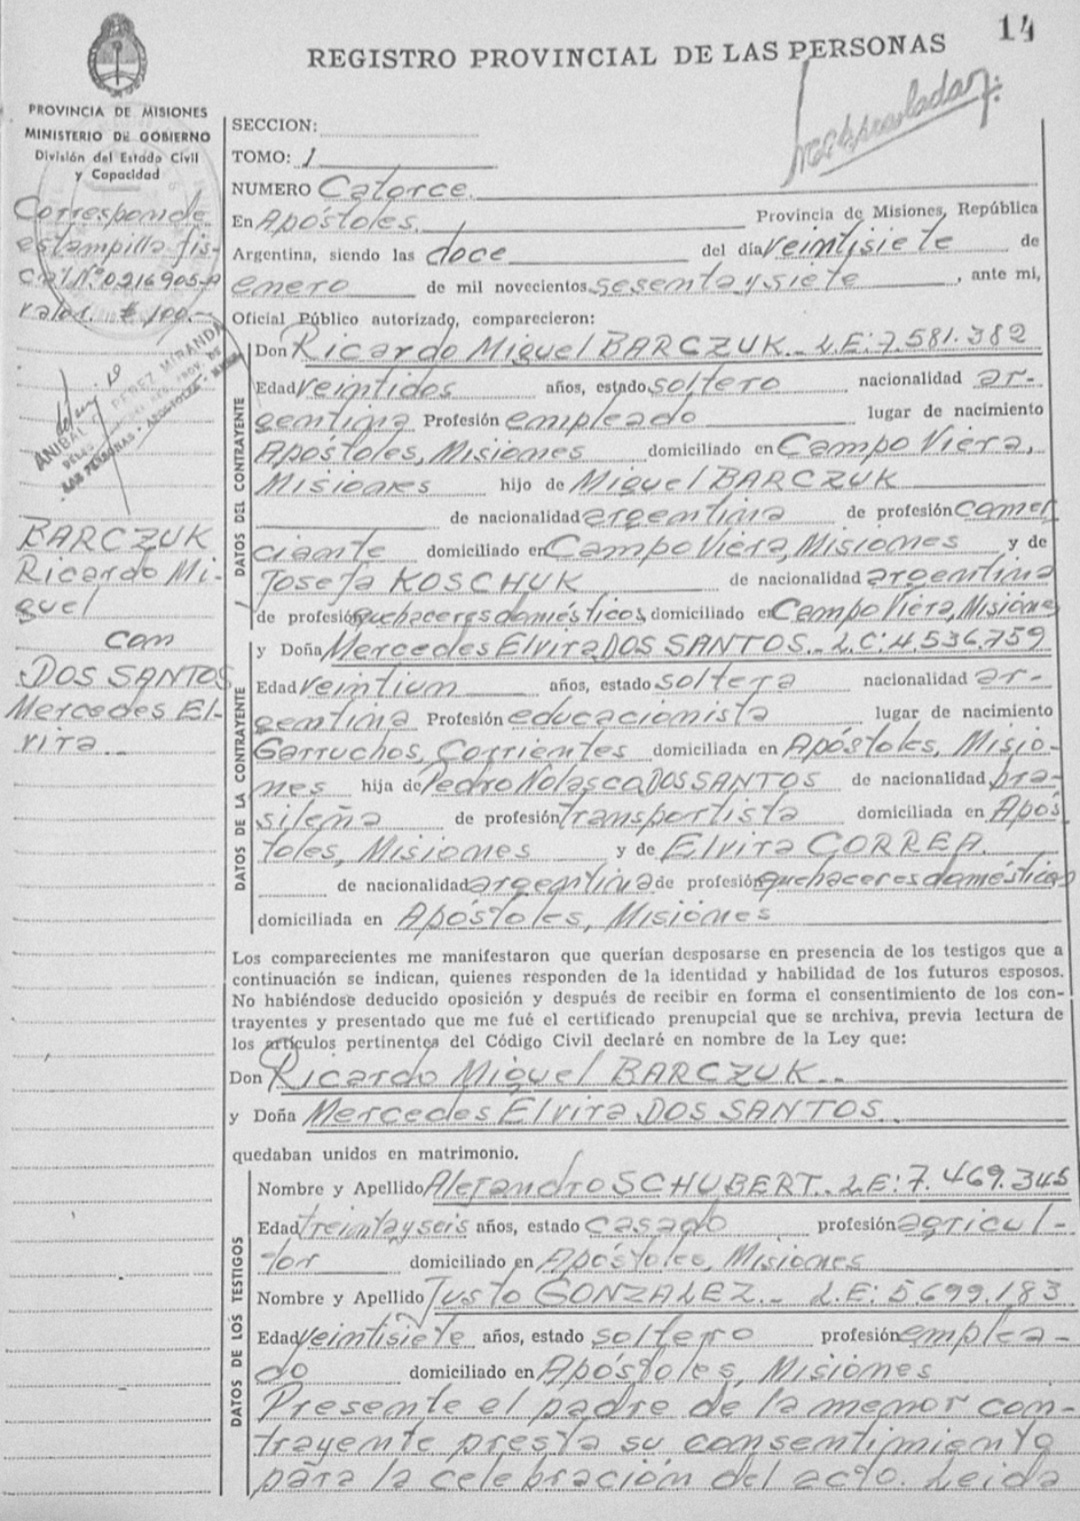 14
REGISTRO PROVINCIAL DE LAS PERSONAS
PROVINCIA DE MISIONES
MINISTERIO DE GOBIERNO
División del Estado Civil
y Capacidad
Corresponde
estampilla fis-
cal N° 0216905-A
valor. $ 100.-
ANIBAL PEREZ MIRANDA
DE LAS PERSONAS - APOSTOLES -
BARCZUK
Ricardo Mi-
guel
con
DOS SANTOS
Mercedes El-
vira
SECCION:
TOMO: 1
NUMERO Catorce.
En Apóstoles. Provincia de Misiones, República
Argentina, siendo las doce del día veintisiete de
enero de mil novecientos sesenta y siete, ante mi,
Oficial Público autorizado, comparecieron:
DATOS DEL CONTRAYENTE
Don Ricardo Miguel BARCZUK.- L.E: 7.581.382
Edad veintidos años, estado soltero nacionalidad ar-
gentina Profesión empleado lugar de nacimiento
Apóstoles, Misiones domiciliado en Campo Viera,
Misiones hijo de Miguel BARCZUK
de nacionalidad argentina de profesión comer
ciante domiciliado en Campo Viera, Misiones y de
Josefa KOSCHUK de nacionalidad argentina
de profesión quehaceres domésticos domiciliado en Campo Viera, Misiones
DATOS DE LA CONTRAYENTE
y Doña Mercedes Elvira DOS SANTOS.- L.C: 4.536.759
Edad veintiun años, estado soltera nacionalidad ar-
gentina Profesión educacionista lugar de nacimiento
Garruchos, Corrientes domiciliada en Apóstoles, Misio-
nes hija de Pedro Nolasco DOS SANTOS de nacionalidad bra-
sileña de profesión transportista domiciliada en Após
toles, Misiones y de Elvira CORREA.
de nacionalidad argentina de profesión quehaceres domésticos
domiciliada en Apóstoles, Misiones
Los comparecientes me manifestaron que querían desposarse en presencia de los testigos que a
continuación se indican, quienes responden de la identidad y habilidad de los futuros esposos.
No habiéndose deducido oposición y después de recibir en forma el consentimiento de los con-
trayentes y presentado que me fué el certificado prenupcial que se archiva, previa lectura de
los artículos pertinentes del Código Civil declaré en nombre de la Ley que:
Don Ricardo Miguel BARCZUK.-
y Doña Mercedes Elvira DOS SANTOS.
quedaban unidos en matrimonio.
DATOS DE LOS TESTIGOS
Nombre y Apellido Alejandro SCHUBERT.- L.E: 7.469.345
Edad treinta y seis años, estado casado profesión agricul-
tor domiciliado en Apóstoles, Misiones
Nombre y Apellido Justo GONZALEZ.- L.E: 5.699.183
Edad veintisiete años, estado soltero profesión emplea-
do domiciliado en Apóstoles, Misiones
Presente el padre de la menor con-
trayente presta su consentimiento
para la celebración del acto. Leida